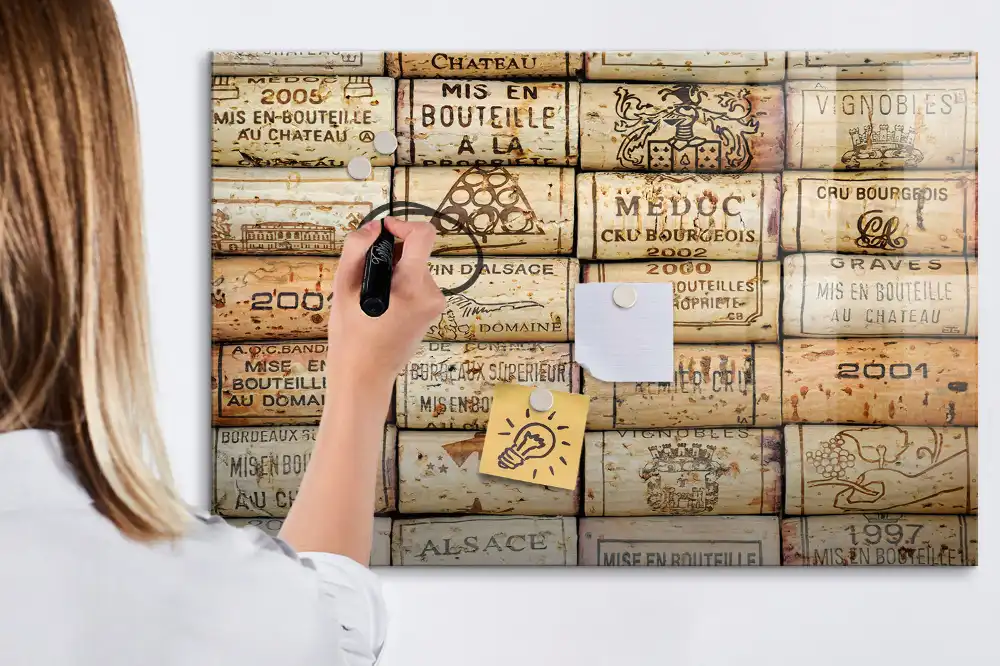 CHATEAU
MEDOC
2005
MIS EN BOUTEILLE
AU CHATEAU
CHATEAU
MIS EN
BOUTEILLE
A LA
PROPRIETE
VIGNOBLES
MEDOC
CRU BOURGEOIS
2002
CRU BOURGEOIS
200
VIN D'ALSACE
DOMAINE
2000
BOUTEILLES
PROPRIETE
CB
GRAVES
MIS EN BOUTEILLE
AU CHATEAU
A.O.C. BANDO
MISE EN
BOUTEILL
AU DOMAI
BORDEAUX SUPERIEUR
MIS EN BO
PREMIER CRU
2001
BORDEAUX S
MIS EN BOU
AU CH
VIGNOBLES
ALSACE
MISE EN BOUTEILLE
1997
MIS EN BOUTEILLE